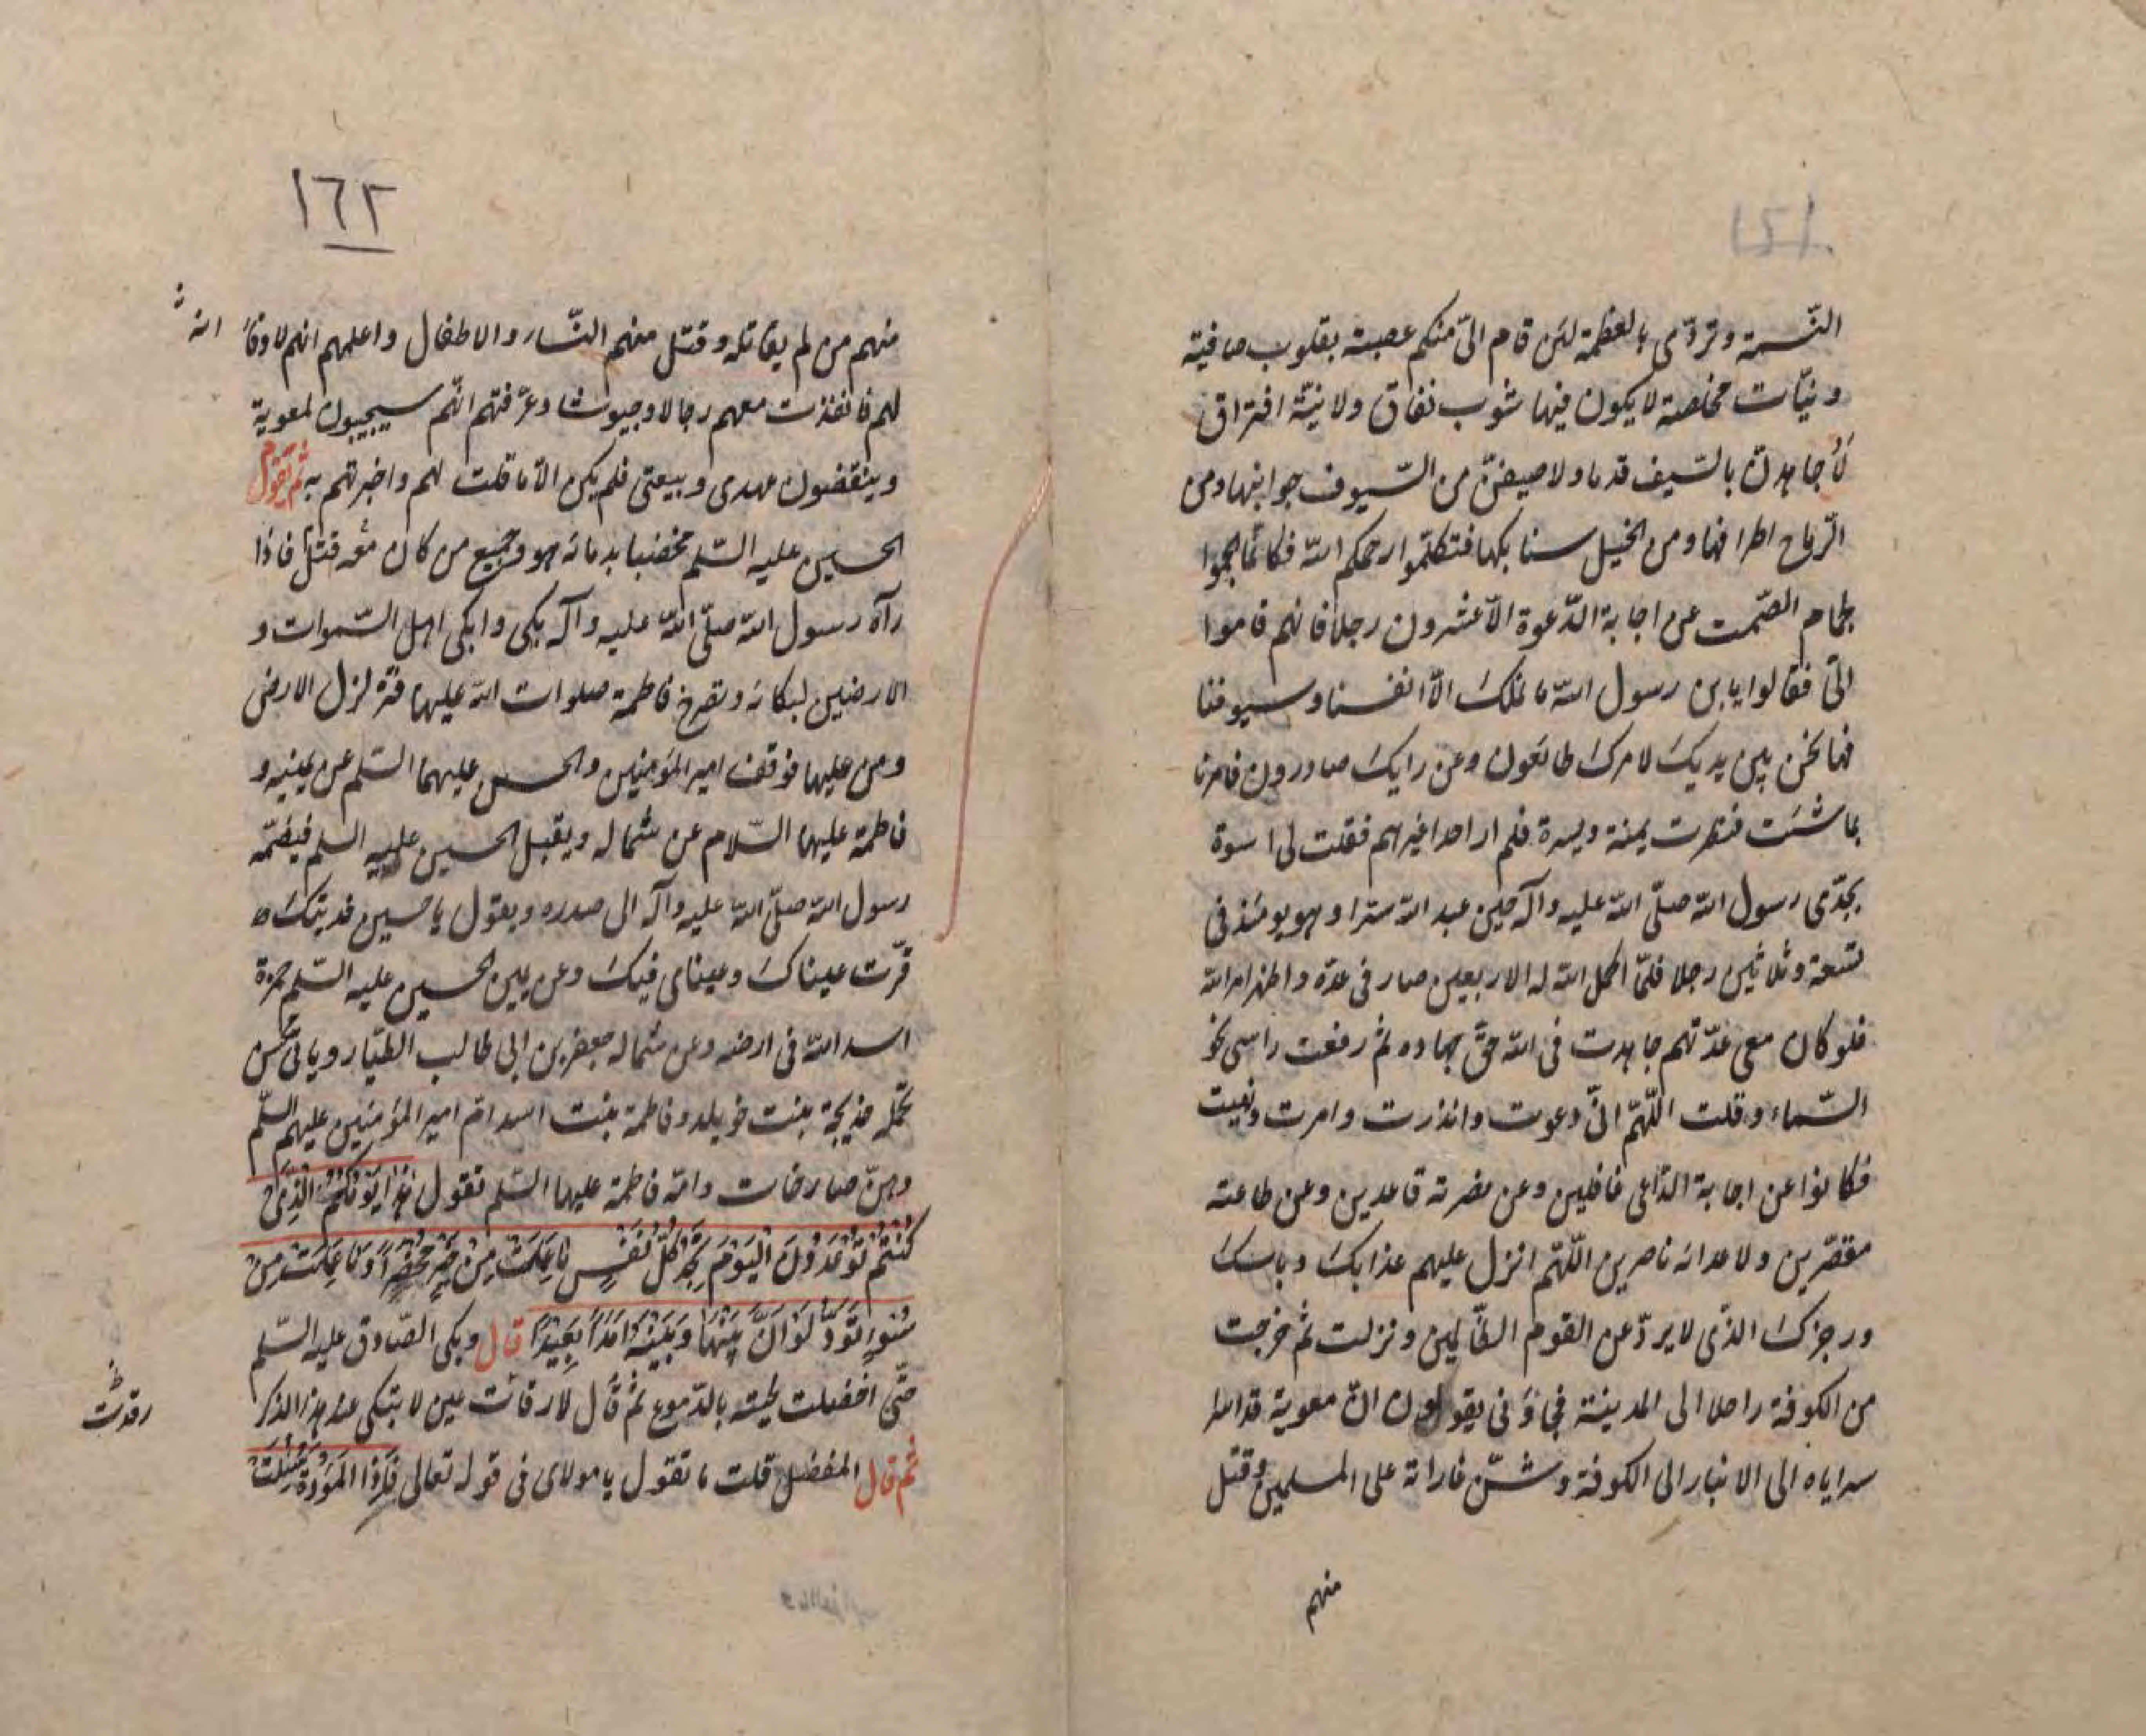 النّسمة وتردّى بالعظمة لئن قام الىّ منكم عصبة بقلوب صافية
ونيّات مخلصة لا يكون فيها شوب نفاق ولا نيّة افتراق
لأجاهدنّ بالسّيف قدما ولاضيفنّ من السّيوف جوانبها ومن
الرّماح اطرافها ومن الخيل سنابكها فتكلّموا رحمكم اللّه فكانّما الجموا
بلجام الصّمت عن اجابة الدّعوة الّا عشرون رجلا فانهم قاموا
الىّ فقالوا يابن رسول اللّه ما نملك الّا انفسنا وسيوفنا
فها نحن بين يديك لامرك طائعون وعن رايك صادرون فامرنا
بما شئت فنظرت يمنة ويسرة فلم ار احدا غيرهم فقلت لى اسوة
بجدّى رسول اللّه صلّى اللّه عليه وآله حين عبد اللّه سترا وهو يومئذ فى
تسعة وثلاثين رجلا فلمّا اكمل اللّه له الاربعين صار فى عدّة واظهر امر اللّه
فلو كان معى عدّتهم جاهدت فى اللّه حقّ جهاده ثم رفعت راسى نحو
السّماء وقلت اللّهمّ انّى دعوت وانذرت وامرت ونهيت
فكانوا عن اجابة الدّاعى غافلين وعن نصرته قاعدين وعن طاعته
مقصّرين ولاعدائه ناصرين اللّهمّ انزل عليهم عذابك وباسك
ورجزك الذّى لا يردّ عن القوم الظّالمين ونزلت ثم خرجت
من الكوفة راحلا الى المدينة فجاؤنى يقولون انّ معوية قد اسرا
سراياه الى الانبار الى الكوفة وشنّ غاراته على المسلمين وقتل
منهم
١٦٢
منهم من لم يقاتله وقتل معهم النّساء والاطفال واعلمهم انهم لا وفا
لهم فانفذت معهم رجالا وجيوشا وعرّفتهم انّهم سيجيبون لمعوية
وينقضون عهدى وبيعتى فلم يكن الّا ما قلت لهم واخبرتهم به ثم يقوم
الحسين عليه السّلم مخضبا بدمائه هو وجميع من كان معه قتل فاذا
رآه رسول اللّه صلّى اللّه عليه وآله بكى وابكى اهل السّموات و
الارضين لبكائه وتصرخ فاطمة صلوات اللّه عليها فتزلزل الارض
ومن عليها فوقف امير المؤمنين والحسن عليهما السّلم عن يمينه و
فاطمة عليها السّلام عن شماله ويقبل الحسين عليه السلم فيضمّه
رسول اللّه صلّى اللّه عليه وآله الى صدره ويقول يا حسين فديتك
قرّت عيناك وعيناى فيك وعن يمين الحسين عليه السّلم حمزة
اسد اللّه فى ارضه وعن شماله جعفر بن ابى طالب الطّيار وياتى محسن
تحمله خديجة بنت خويلد وفاطمة بنت اسد امّ امير المؤمنين عليهم السّلم
وهنّ صارخات وامّه فاطمة عليها السّلم تقول هٰذا يَوْمُكُمُ الَّذِى
كُنْتُمْ تُوْعَدُوْنَ اليَوْمَ تَجِدُ كُلُّ نَفْسٍ مَا عَمِلَتْ مِنْ خَيْرٍ مُحْضَرًا وَمَا عَمِلَتْ مِنْ
سُوْءٍ تَوَدُّ لَوْ اَنَّ بَيْنَهَا وَبَيْنَهُ اَمَدًا بَعِيْدًا قال وبكى الصّادق عليه السّلم
حتّى اخضلت لحيته بالدّموع ثم قال لا رقات عين لا تبكى عند هذا الذكر
ثم قال المفضل قلت ما تقول يا مولاى فى قوله تعالى وَاِذَا المَوْؤُدَةُ سُئِلَتْ